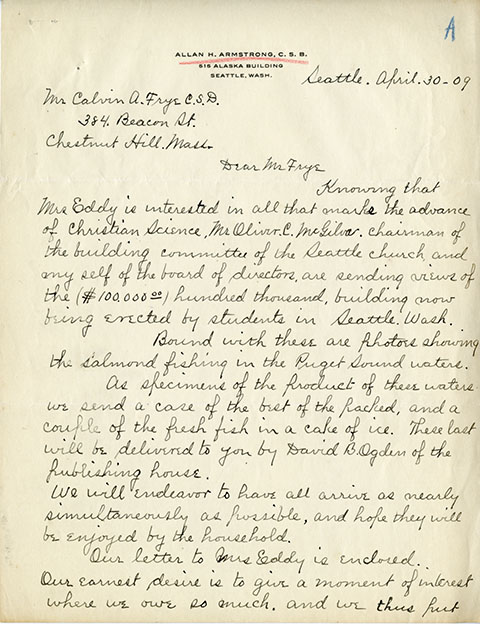 A
ALLAN H. ARMSTRONG, C. S. B.
516 ALASKA BUILDING
SEATTLE, WASH.
Seattle. April. 30-09
Mr Calvin A. Frye C.S.D.
384. Beacon St.
Chestnut Hill. Mass.
Dear Mr Frye
Knowing that
Mrs Eddy is interested in all that marks the advance
of Christian Science, Mr Oliver. C. McGilvra. chairman of
the building committee of the Seattle church, and
my self of the board of directors, are sending views of
the ($100,000.00) hundred thousand, building now
being erected by students in Seattle. Wash.
Bound with these are photoes showing
the salmond fishing in the Puget Sound waters.
As specimens of the product of these waters
we send a case of the best of the packed, and a
couple of the fresh fish in a cake of ice. These last
will be delivered to you by David B. Ogden of the
publishing house.
We will endeavor to have all arrive as nearly
simultaneously as possible, and hope they will
be enjoyed by the household.
Our letter to Mrs Eddy is enclosed.
Our earnest desire is to give a moment of interest
where we owe so much. and we thus put